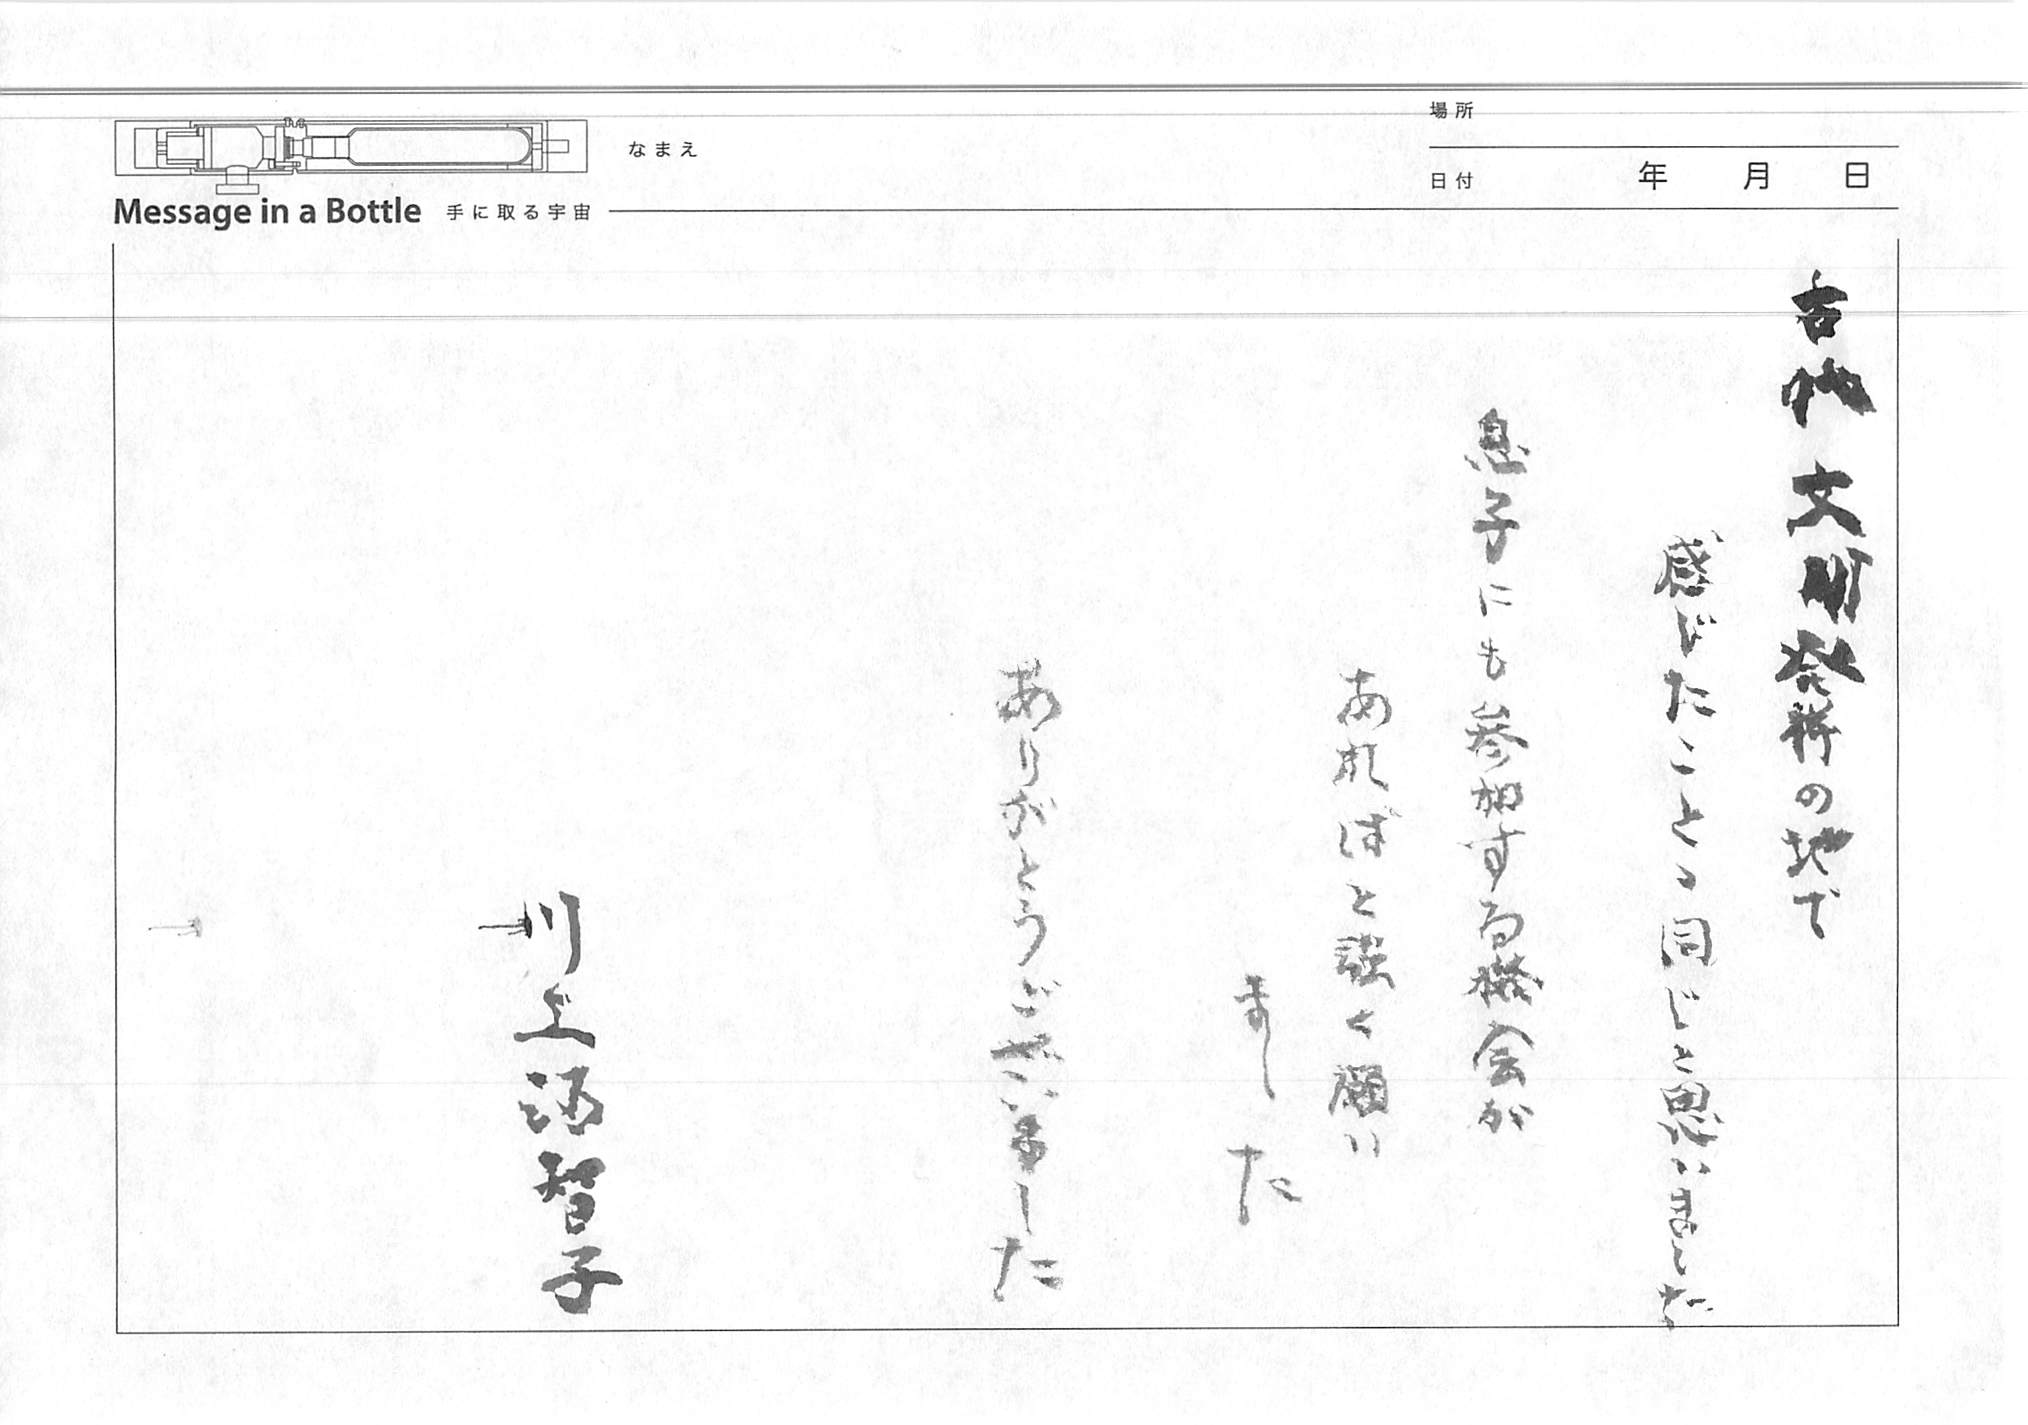 場所
なまえ
日付 年 月 日
Message in a Bottle 手に取る宇宙
古代文明発祥の地で
感じたことゝ同じと思いました
息子にも参加する機会が
あればと強く願い
ました
ありがとうございました
川上 智子